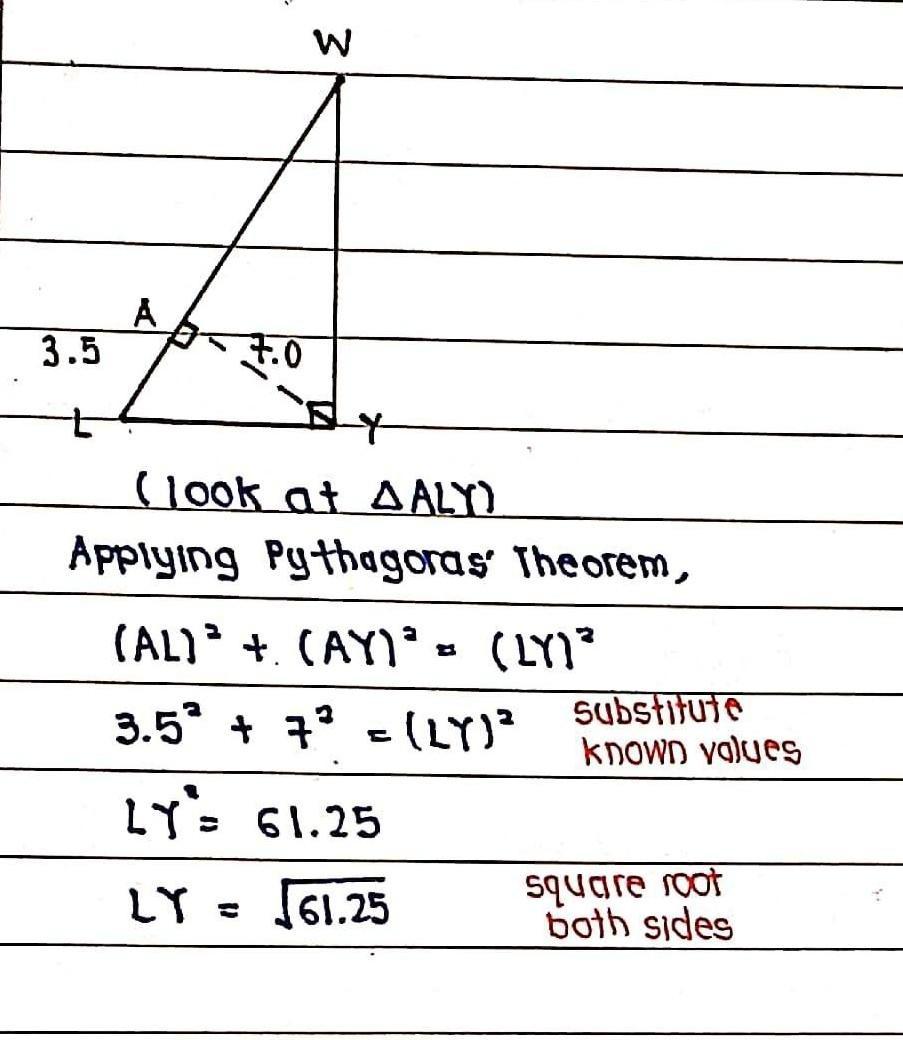 W
A
3.5
7.0
L
Y
(look at △ALY)
Applying Pythagoras' Theorem,
(AL)² + (AY)² = (LY)²
3.5² + 7² = (LY)² substitute
known values
LY² = 61.25
LY = √61.25 square root
both sides